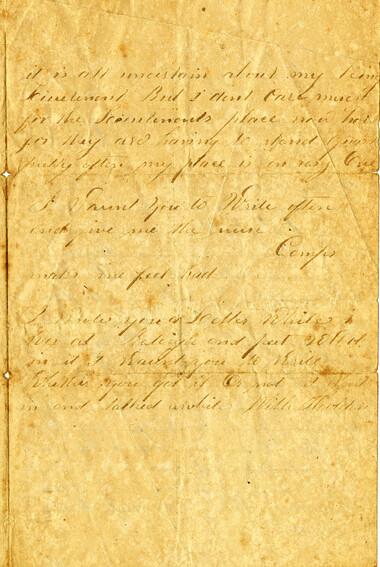 it is all uncertain about my being
Lieutenant But I dont Care much
for the Lieutenants place now
for they are having to stand guard
pretty often my place is an easy One
I Want You to Write often
and give me the news
Camps
makes me feel bad
I wrote you a Letter While I
was at Raleigh and put
in it I Want you to Write
Whether you got it Or not I
in and talked awhile With